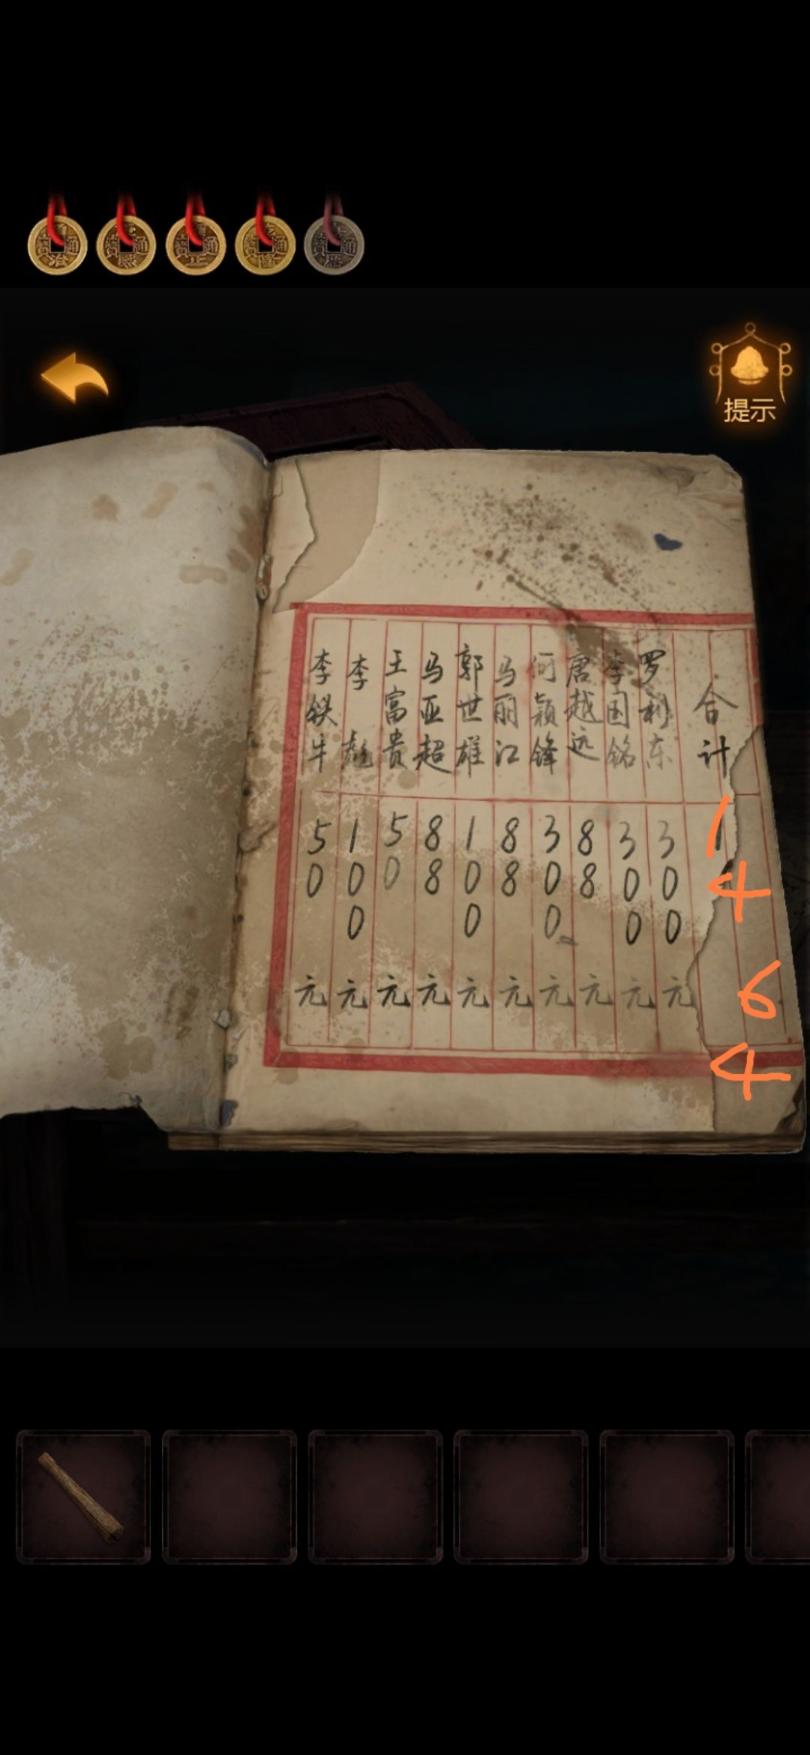 提示
李铁牛 50元
李彪 100元
王富贵 50元
马亚超 88元
郭世雄 100元
马丽江 88元
何颖锋 300元
唐越远 88元
李国铭 300元
罗利东 300元
合计 1464